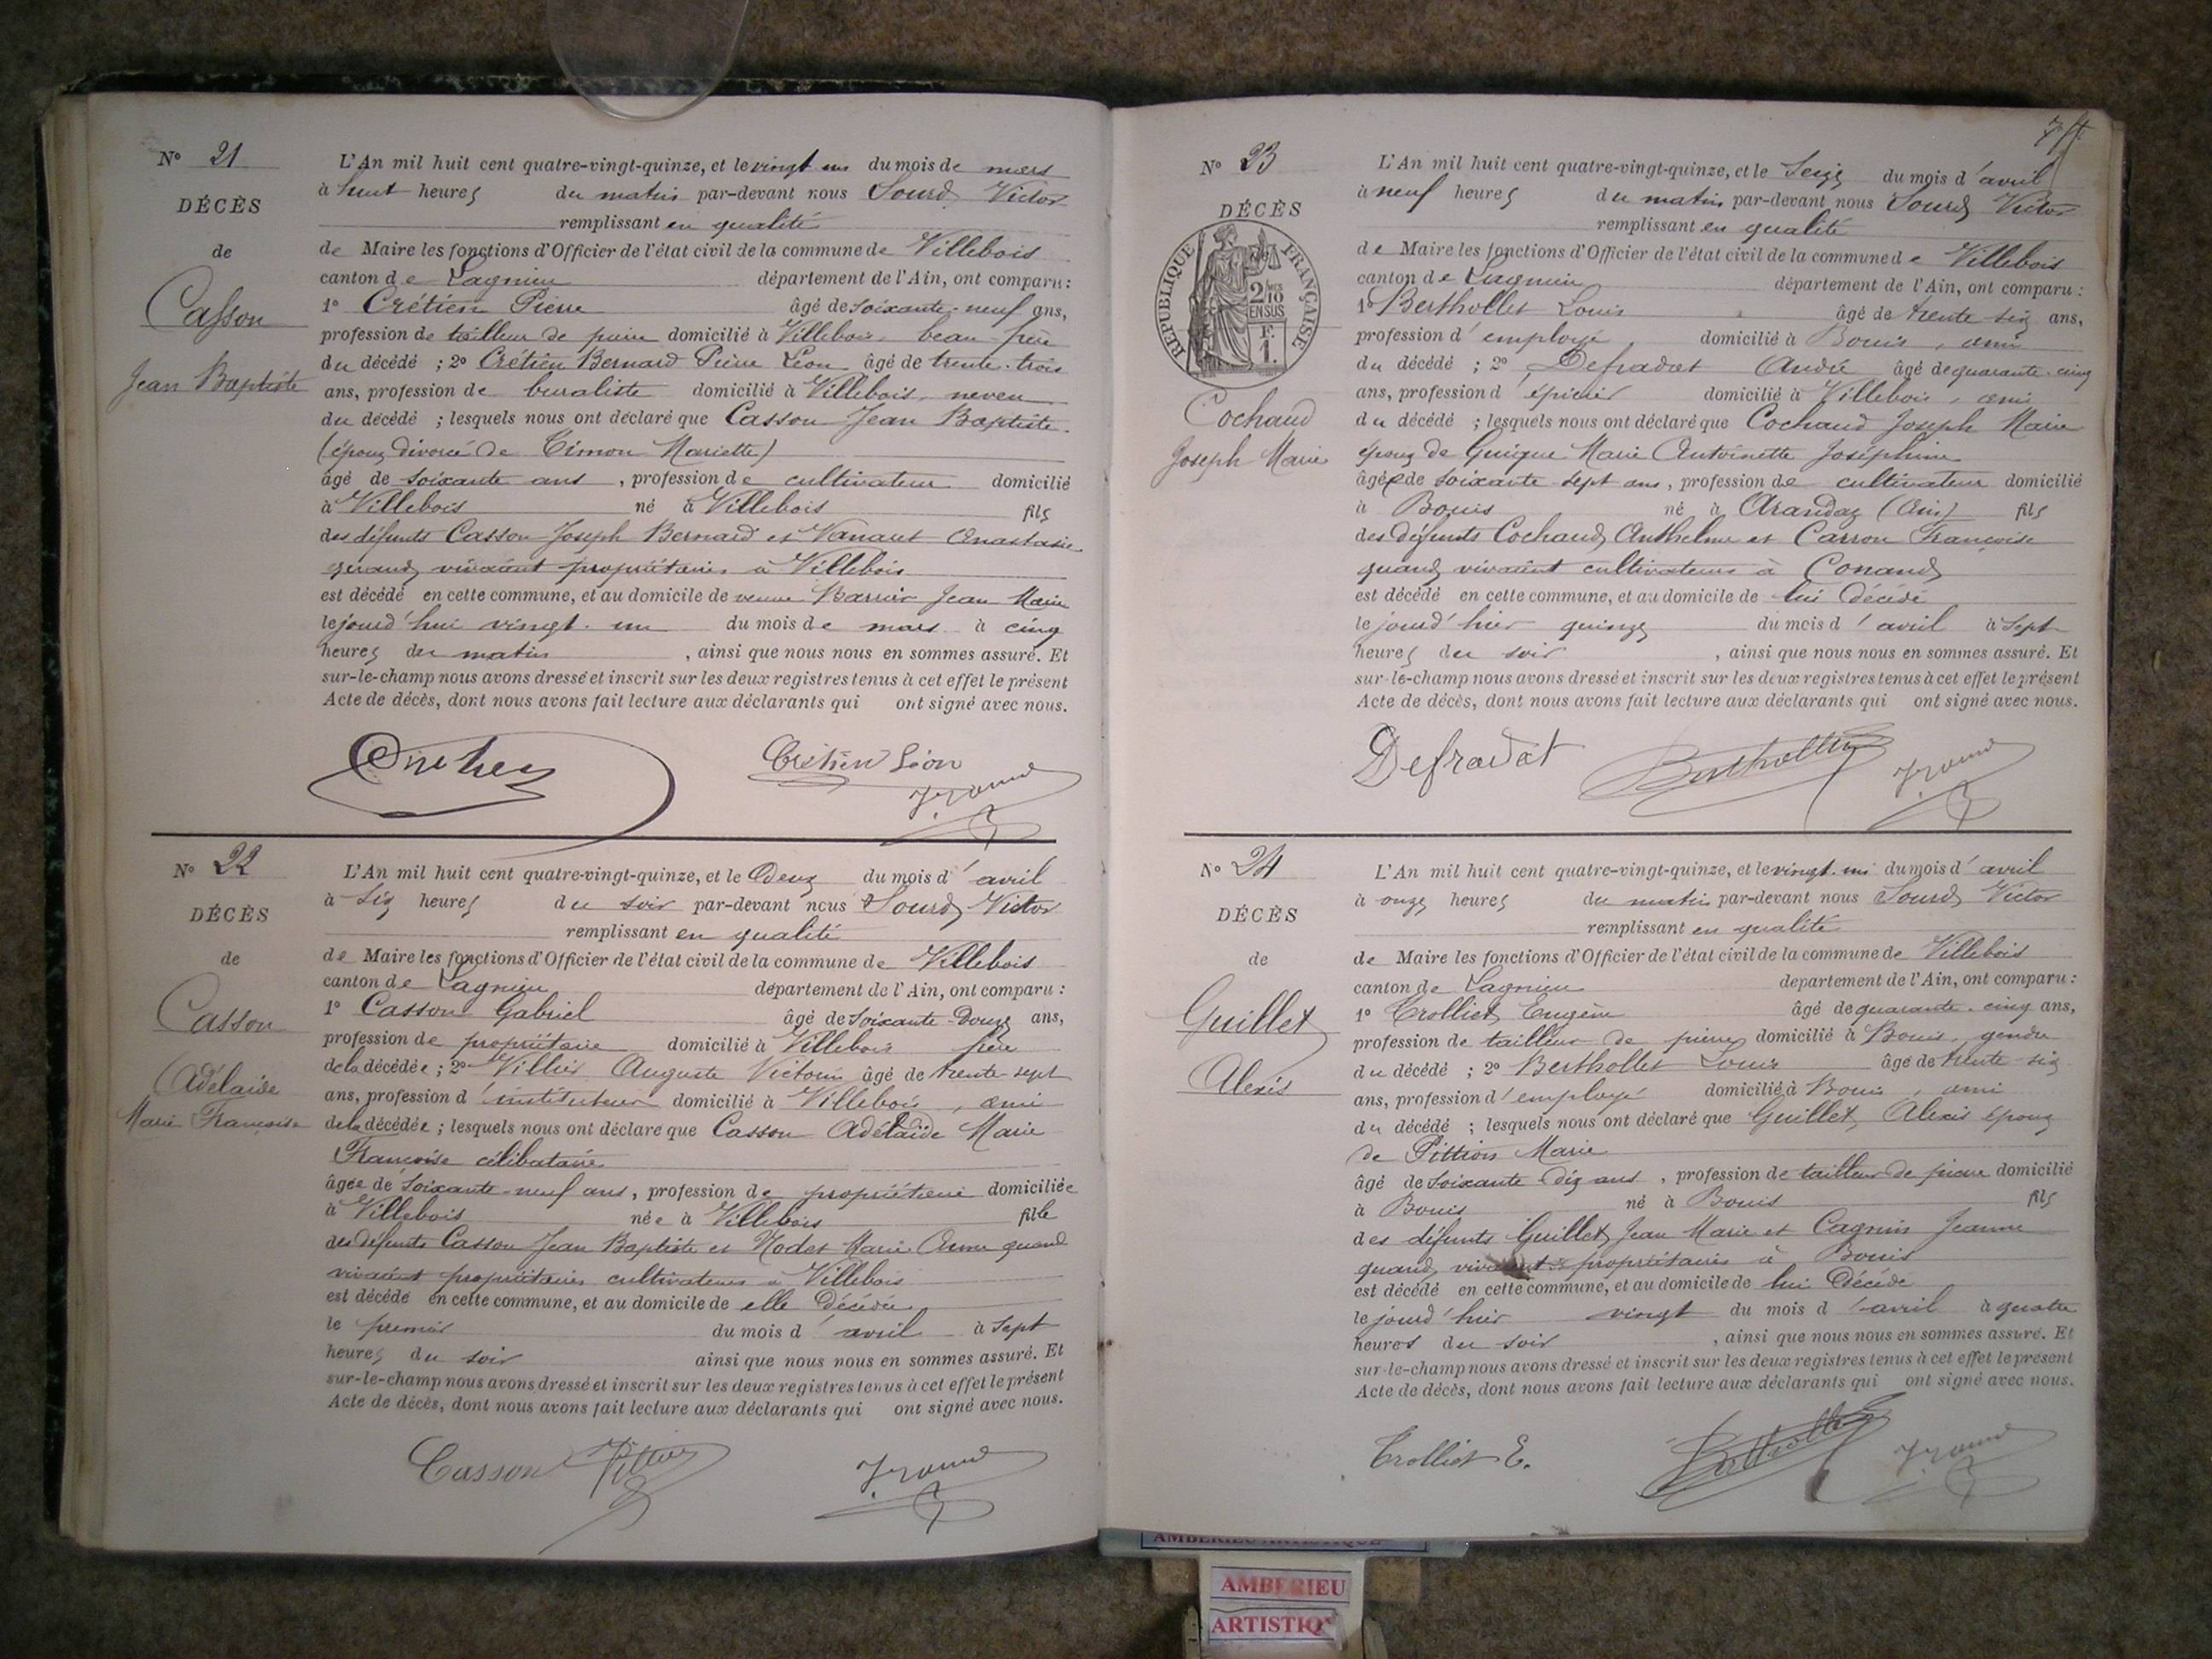 N° 21
DÉCÈS
de
Casson
Jean Baptiste
L'An mil huit cent quatre-vingt-quinze, et le vingt un du mois de mars
à huit heures du matin par-devant nous Sourd Victor
remplissant en qualité
de Maire les fonctions d'Officier de l'état civil de la commune de Villebois
canton de Lagnieu département de l'Ain, ont comparu :
1° Crétien Pierre âgé de soixante-neuf ans,
profession de tailleur de pierre domicilié à Villebois, beau-frère
du décédé ; 2° Crétien Bernard Pierre Léon âgé de trente-trois
ans, profession de buraliste domicilié à Villebois, neveu
du décédé ; lesquels nous ont déclaré que Casson Jean Baptiste
(époux divorcé de Timon Mariette)
âgé de soixante ans, profession de cultivateur domicilié
à Villebois né à Villebois fils
des défunts Casson Joseph Bernard et Vanaret Anastasie
quand vivaient propriétaires à Villebois
est décédé en cette commune, et au domicile de veuve Barrier Jean Marie
le jourd'hui vingt-un du mois de mars à cinq
heures du matin, ainsi que nous nous en sommes assuré. Et
sur-le-champ nous avons dressé et inscrit sur les deux registres tenus à cet effet le présent
Acte de décès, dont nous avons fait lecture aux déclarants qui ont signé avec nous.
Crétien Léon
N° 22
DÉCÈS
de
Casson
Adélaïde
Marie Françoise
L'An mil huit cent quatre-vingt-quinze, et le deux du mois d'avril
à six heures du soir par-devant nous Sourd Victor
remplissant en qualité
de Maire les fonctions d'Officier de l'état civil de la commune de Villebois
canton de Lagnieu département de l'Ain, ont comparu :
1° Casson Gabriel âgé de soixante-douze ans,
profession de propriétaire domicilié à Villebois frère
de la décédée ; 2° Villier Auguste Victorin âgé de trente-sept
ans, profession d'instituteur domicilié à Villebois, ami
de la décédée ; lesquels nous ont déclaré que Casson Adélaïde Marie
Françoise célibataire
âgée de soixante-neuf ans, profession de propriétaire domiciliée
à Villebois née à Villebois fille
des défunts Casson Jean Baptiste et Nodet Marie Anne quand
vivaient propriétaires cultivateurs à Villebois
est décédé en cette commune, et au domicile de elle décédée
le premier du mois d'avril à sept
heures du soir ainsi que nous nous en sommes assuré. Et
sur-le-champ nous avons dressé et inscrit sur les deux registres tenus à cet effet le présent
Acte de décès, dont nous avons fait lecture aux déclarants qui ont signé avec nous.
Casson Villier
N° 23
DÉCÈS
RÉPUBLIQUE FRANÇAISE
2/10
EN SUS
F.
1.
Cochaud
Joseph Marie
L'An mil huit cent quatre-vingt-quinze, et le seize du mois d'avril
à neuf heures du matin par-devant nous Sourd Victor
remplissant en qualité
de Maire les fonctions d'Officier de l'état civil de la commune de Villebois
canton de Lagnieu département de l'Ain, ont comparu :
1° Berthollet Louis âgé de trente-six ans,
profession d'employé domicilié à Bouis, ami
du décédé ; 2° Defradat André âgé de quarante-cinq
ans, profession d'épicier domicilié à Villebois, ami
du décédé ; lesquels nous ont déclaré que Cochaud Joseph Marie
époux de Guigue Marie Antoinette Joséphine
âgé de soixante-sept ans, profession de cultivateur domicilié
à Bouis né à Arandaz (Ain) fils
des défunts Cochaud Anthelme et Carron Françoise
quand vivaient cultivateurs à Conand
est décédé en cette commune, et au domicile de lui décédé
le jourd'hier quinze du mois d'avril à sept
heures du soir, ainsi que nous nous en sommes assuré. Et
sur-le-champ nous avons dressé et inscrit sur les deux registres tenus à cet effet le présent
Acte de décès, dont nous avons fait lecture aux déclarants qui ont signé avec nous.
Defradat Berthollet
N° 24
DÉCÈS
de
Guillet
Alexis
L'An mil huit cent quatre-vingt-quinze, et le vingt-un du mois d'avril
à onze heures du matin par-devant nous Sourd Victor
remplissant en qualité
de Maire les fonctions d'Officier de l'état civil de la commune de Villebois
canton de Lagnieu département de l'Ain, ont comparu :
1° Trolliet Eugène âgé de quarante-cinq ans,
profession de tailleur de pierre domicilié à Bouis, gendre
du décédé ; 2° Berthollet Louis âgé de trente-six
ans, profession d'employé domicilié à Bouis, ami
du décédé ; lesquels nous ont déclaré que Guillet Alexis époux
de Pittion Marie
âgé de soixante-dix ans, profession de tailleur de pierre domicilié
à Bouis né à Bouis fils
des défunts Guillet Jean Marie et Cagnin Jeanne
quand vivaient propriétaires à Bouis
est décédé en cette commune, et au domicile de lui décédé
le jourd'hier vingt du mois d'avril à quatre
heures du soir, ainsi que nous nous en sommes assuré. Et
sur-le-champ nous avons dressé et inscrit sur les deux registres tenus à cet effet le présent
Acte de décès, dont nous avons fait lecture aux déclarants qui ont signé avec nous.
Trolliet E. Berthollet
AMBERIEU ARTISTIQUE
AMBERIEU
ARTISTIQ